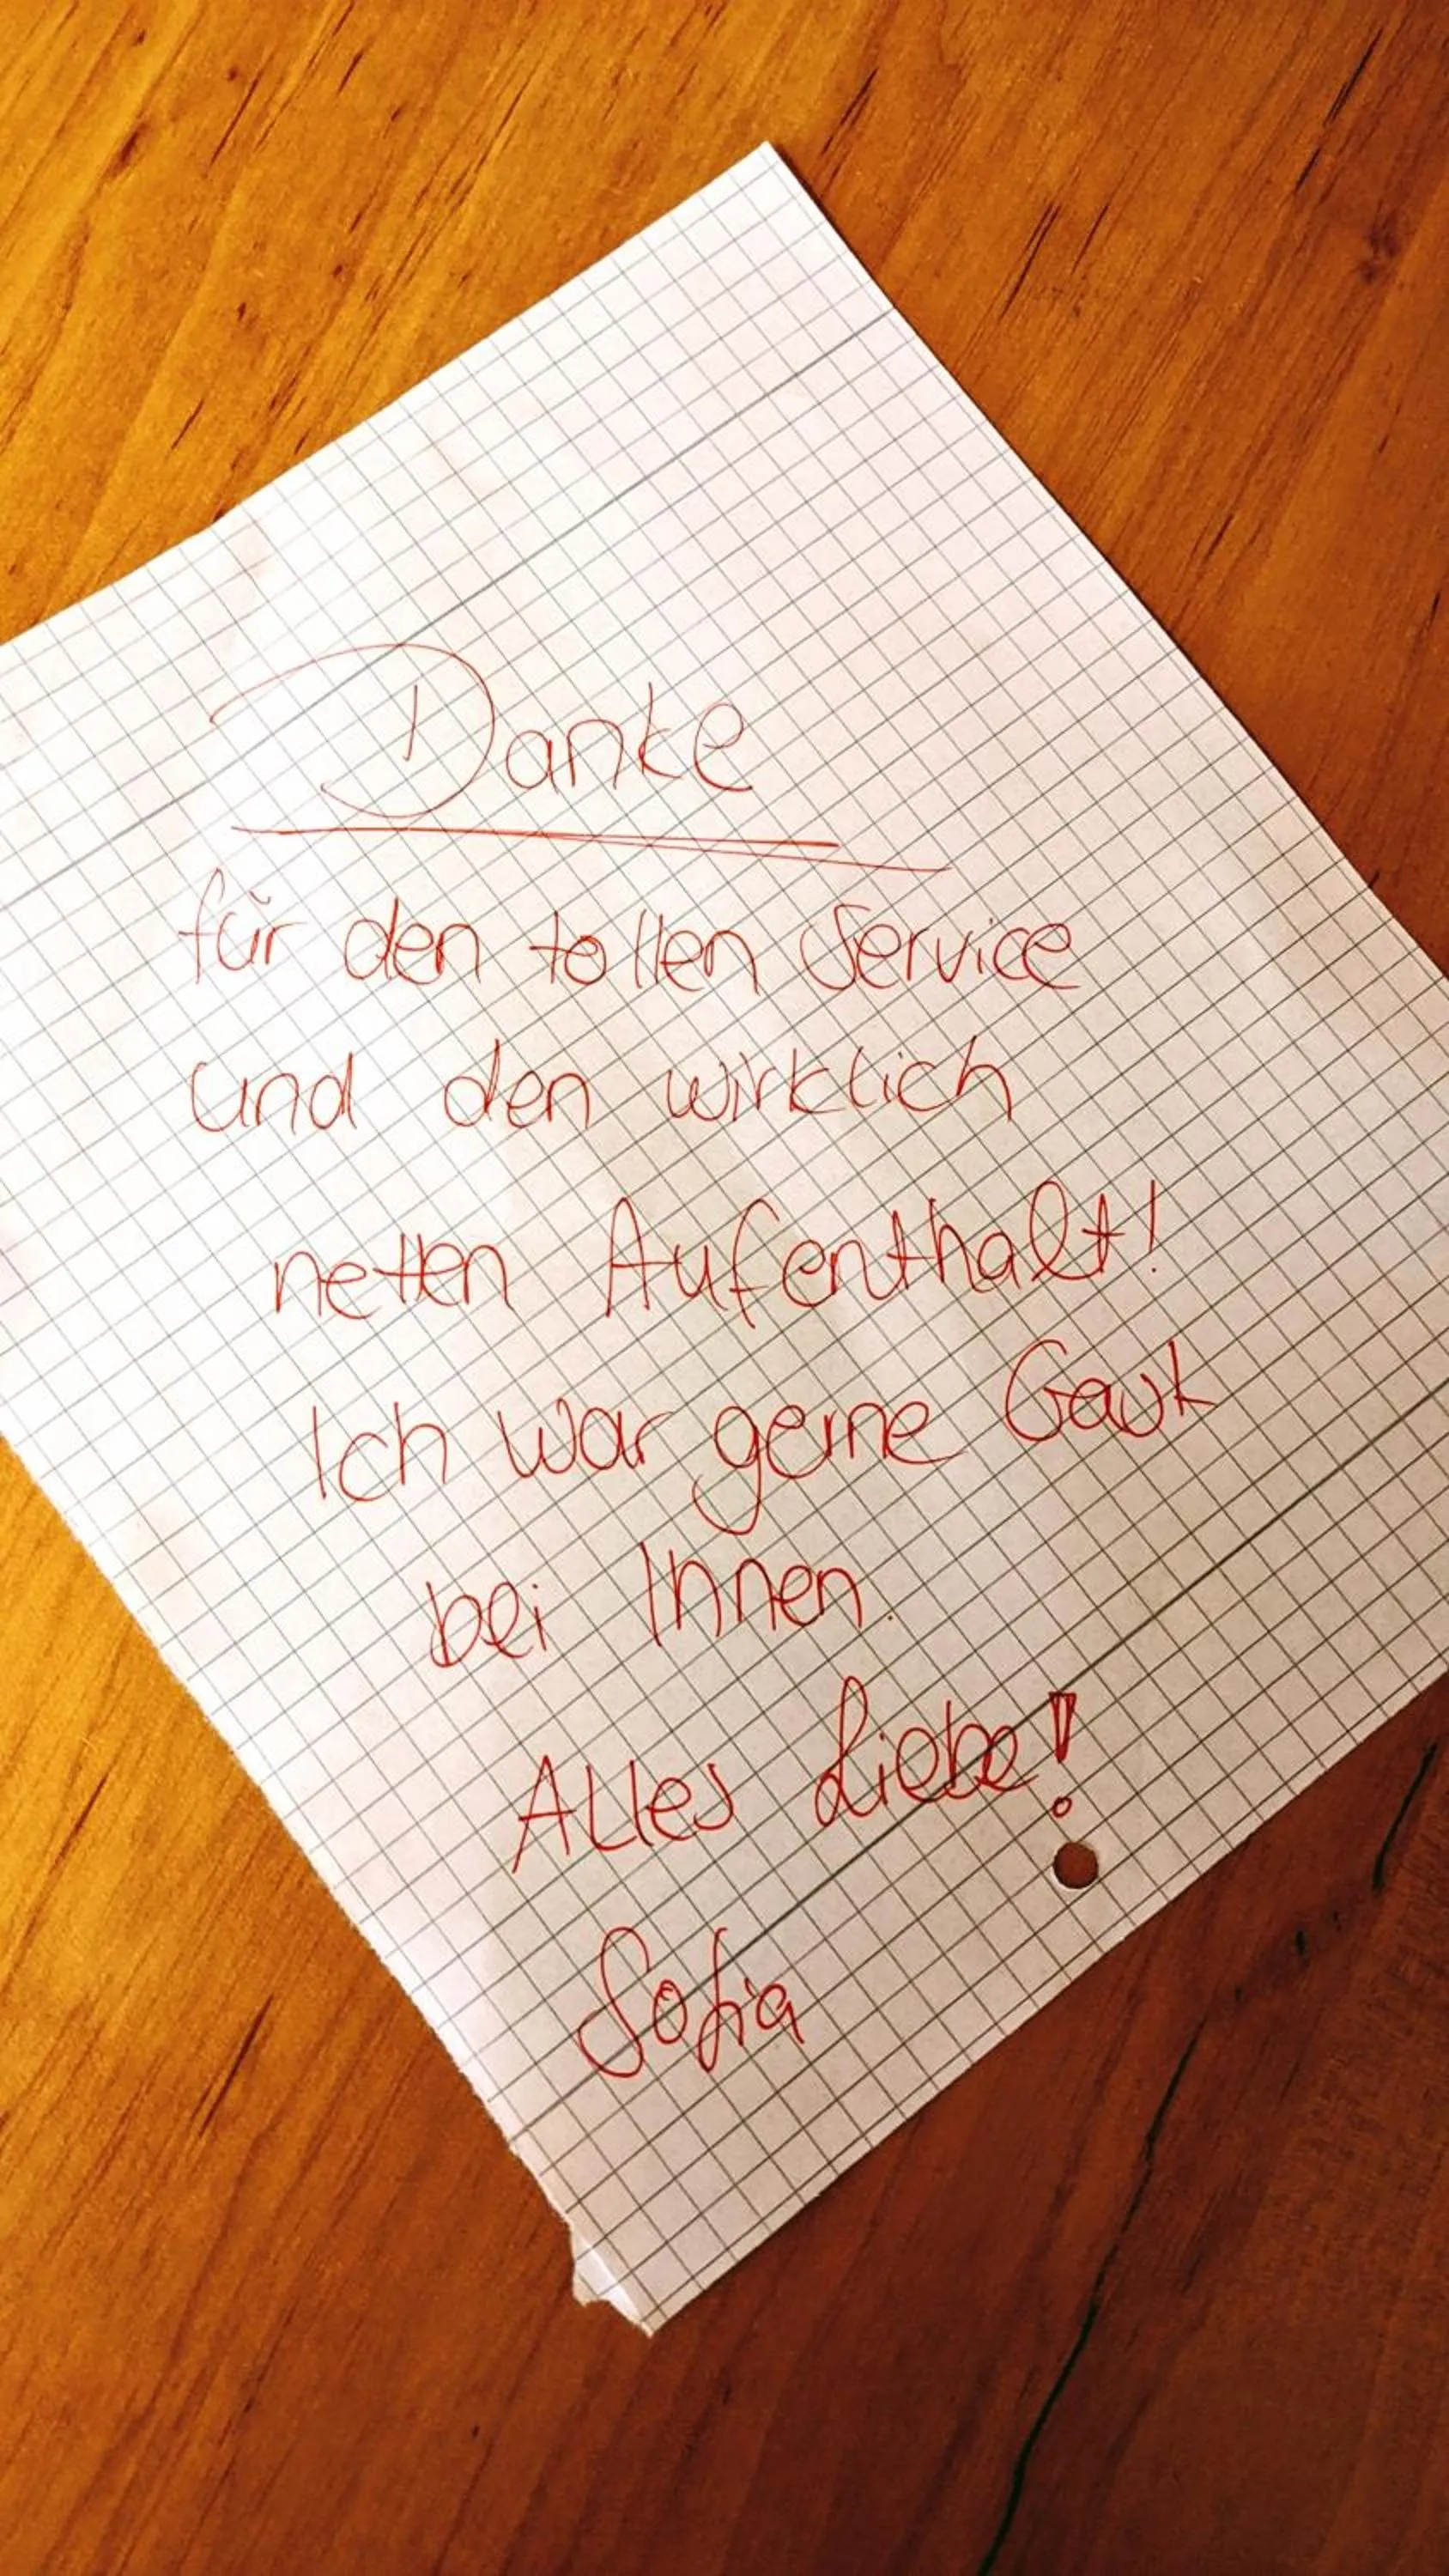 Danke
für den tollen Service
und den wirklich
netten Aufenthalt!
Ich war gerne Gast
bei Ihnen.
Alles Liebe!
Sofia